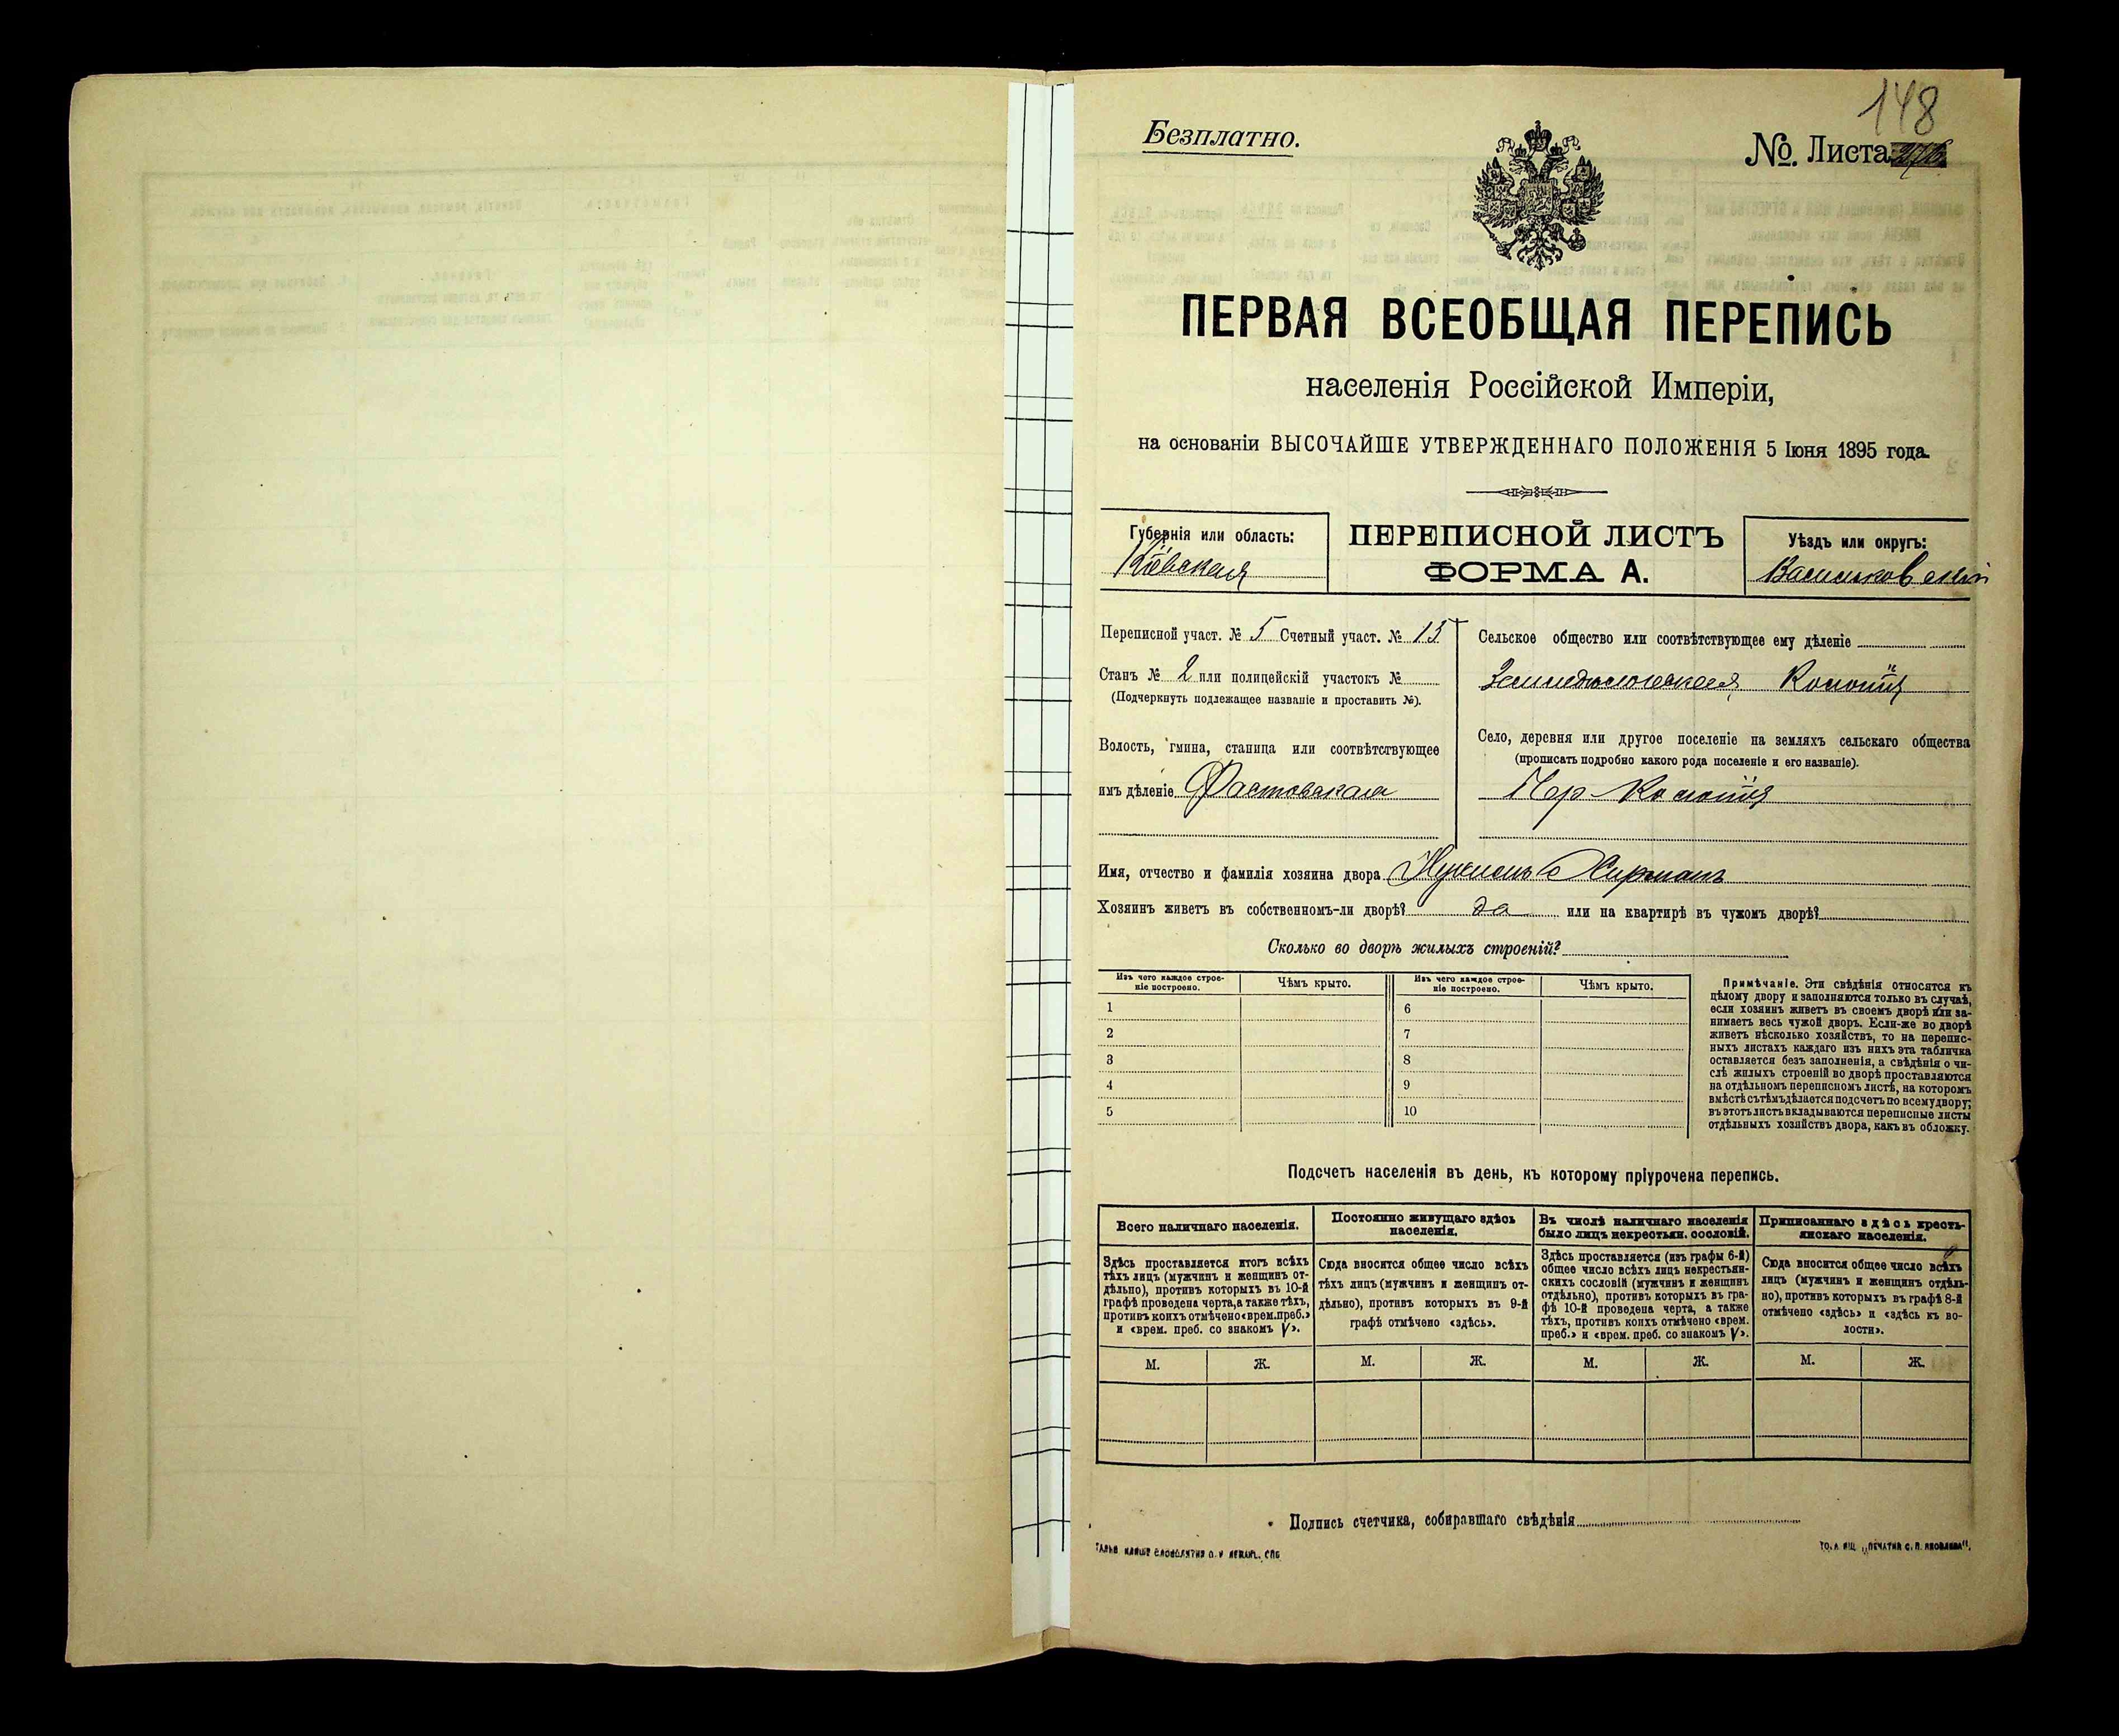 148
Безплатно.
№. Листа
ПЕРВАЯ ВСЕОБЩАЯ ПЕРЕПИСЬ
населенія Россійской Имперіи,
на основаніи ВЫСОЧАЙШЕ УТВЕРЖДЕННАГО ПОЛОЖЕНІЯ 5 Іюня 1895 года.
Губернія или область:
Кіевская
ПЕРЕПИСНОЙ ЛИСТЪ
ФОРМА А.
Уѣздъ или округъ:
Васильковскій
Переписной участ. № 5 Счетный участ. № 15
Станъ № 2 или полицейскій участокъ №
(Подчеркнуть подлежащее названіе и проставить №).
Волость, гмина, станица или соотвѣтствующее
имъ дѣленіе Фастовская
Сельское общество или соотвѣтствующее ему дѣленіе
Колонія
Село, деревня или другое поселеніе на земляхъ сельскаго общества
(прописать подробно какого рода поселеніе и его названіе).
Колонія
Имя, отчество и фамилія хозяина двора
Хозяинъ живетъ въ собственномъ-ли дворѣ? да или на квартирѣ въ чужомъ дворѣ?
Сколько во дворѣ жилыхъ строеній?
Изъ чего каждое строе-
ніе построено.
Чѣмъ крыто.
Изъ чего каждое строе-
ніе построено.
Чѣмъ крыто.
1 6
2 7
3 8
4 9
5 10
Примѣчаніе. Эти свѣдѣнія относятся къ
цѣлому двору и заполняются только въ случаѣ,
если хозяинъ живетъ въ своемъ дворѣ или за-
нимаетъ весь чужой дворъ. Если-же во дворѣ
живетъ нѣсколько хозяйствъ, то на перепис-
ныхъ листахъ каждаго изъ нихъ эта табличка
оставляется безъ заполненія, а свѣдѣнія о чи-
слѣ жилыхъ строеній во дворѣ проставляются
на отдѣльномъ переписномъ листѣ, на которомъ
вмѣстѣ съ тѣмъ дѣлается подсчетъ по всему двору;
въ этотъ листъ вкладываются переписные листы
отдѣльныхъ хозяйствъ двора, какъ въ обложку.
Подсчетъ населенія въ день, къ которому пріурочена перепись.
Всего наличнаго населенія.
Здѣсь проставляется итогъ всѣхъ
тѣхъ лицъ (мужчинъ и женщинъ от-
дѣльно), противъ которыхъ въ 10-й
графѣ проведена черта, а также тѣхъ,
противъ коихъ отмѣчено «врем. преб.»
и «врем. преб. со знакомъ V».
Постоянно живущаго здѣсь
населенія.
Сюда вносится общее число всѣхъ
тѣхъ лицъ (мужчинъ и женщинъ от-
дѣльно), противъ которыхъ въ 9-й
графѣ отмѣчено «здѣсь».
Въ числѣ наличнаго населенія
было лицъ некрестьян. сословій.
Здѣсь проставляется (изъ графы 6-й)
общее число всѣхъ лицъ некрестьян-
скихъ сословій (мужчинъ и женщинъ
отдѣльно), противъ которыхъ въ гра-
фѣ 10-й проведена черта, а также
тѣхъ, противъ коихъ отмѣчено «врем.
преб.» и «врем. преб. со знакомъ V».
Приписаннаго здѣсь кресть-
янскаго населенія.
Сюда вносится общее число всѣхъ
лицъ (мужчинъ и женщинъ отдѣль-
но), противъ которыхъ въ графѣ 8-й
отмѣчено «здѣсь» и «здѣсь къ во-
лости».
М. Ж. М. Ж. М. Ж. М. Ж.
Подпись счетчика, собиравшаго свѣдѣнія